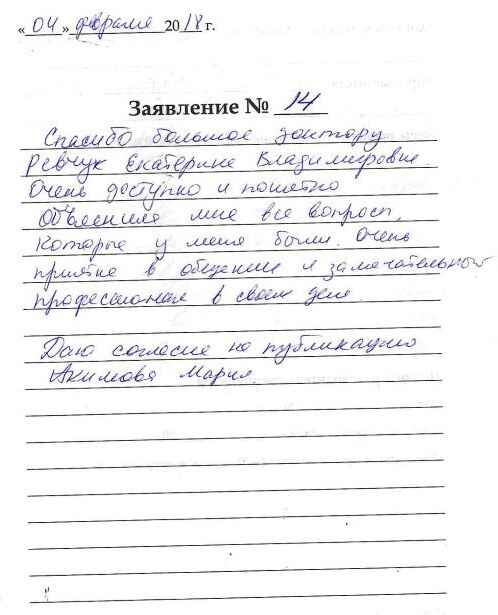 «04» февраля 2018 г.
Заявление № 14
Спасибо большое доктору
Ревчук Екатерине Владимировне.
Очень доступно и понятно
объяснила мне все вопросы,
которые у меня были. Очень
приятна в общении и замечательный
профессионал в своем деле.
Даю согласие на публикацию
Акимова Мария.